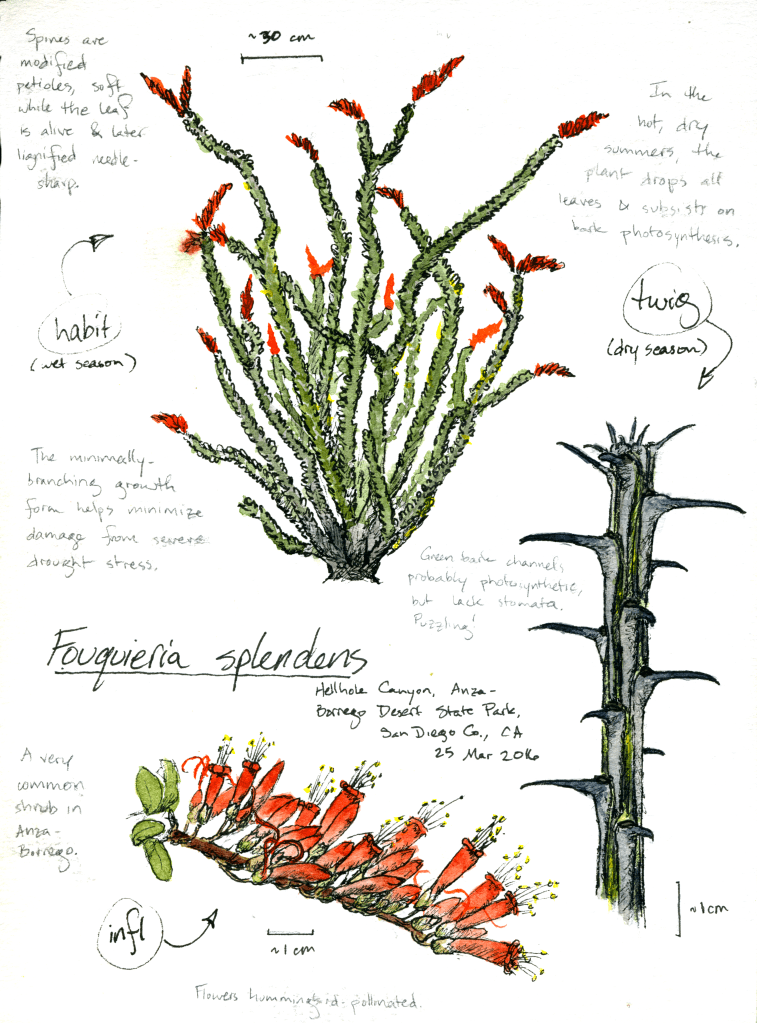 Spines are
modified
petioles, soft
while the leaf
is alive & later
lignified needle-
sharp.
~30 cm
In the
hot, dry
summers, the
plant drops all
leaves & subsists on
bark photosynthesis.
habit
(wet season)
twig
(dry season)
The minimally-
branching growth
form helps minimize
damage from severe
drought stress.
Green bark channels
probably photosynthetic,
but lack stomata.
Puzzling!
Fouquieria splendens
Hellhole Canyon, Anza-
Borrego Desert State Park,
San Diego Co., CA
25 Mar 2016
A very
common
shrub in
Anza-
Borrego.
infl
~1 cm
~1cm
Flowers hummingbird-pollinated.